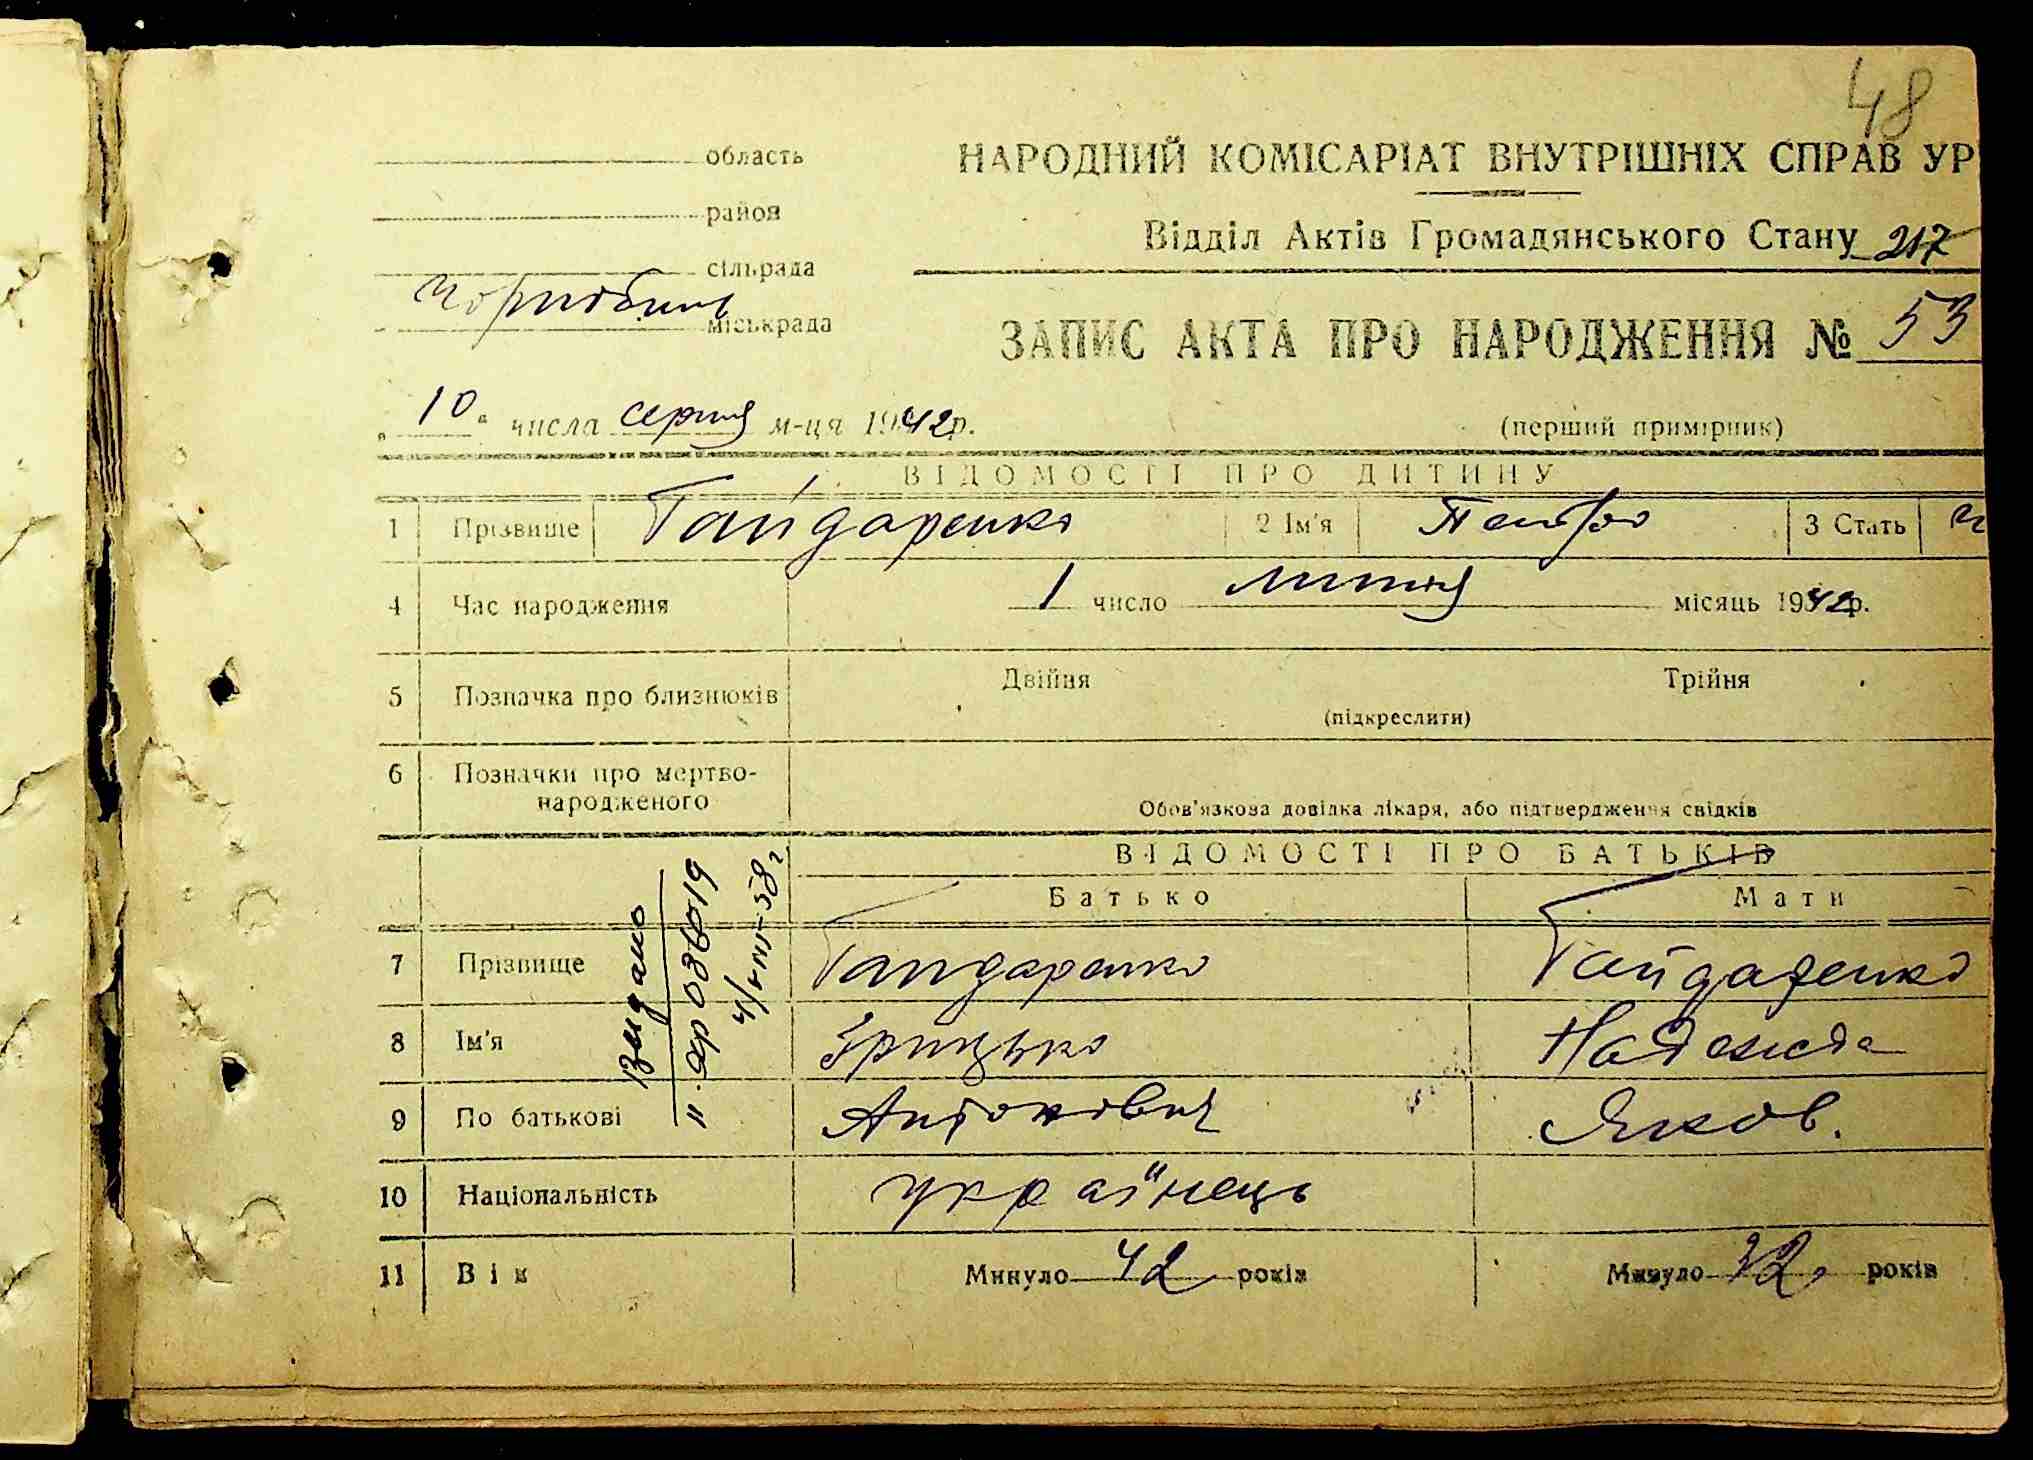 48
область
район
сільрада
Чорнобиль
міськрада
НАРОДНИЙ КОМІСАРІАТ ВНУТРІШНІХ СПРАВ УР
Відділ Актів Громадянського Стану 217
ЗАПИС АКТА ПРО НАРОДЖЕННЯ № 53
„10“ числа серпня м-ця 1942р.
(перший примірник)
ВІДОМОСТІ ПРО ДИТИНУ
1 Прізвище Гайдаренко 2 Ім'я Петро 3 Стать ч
4 Час народження 1 число липня місяць 1942р.
5 Позначка про близнюків Двійня Трійня
(підкреслити)
6 Позначки про мертво-
народженого
Обов'язкова довідка лікаря, або підтвердження свідків
ВІДОМОСТІ ПРО БАТЬКІВ
Батько Мати
7 Прізвище Гайдаренко Гайдаренко
8 Ім'я Грицько Надежда
9 По батькові Антонович Яков.
10 Національність українець
11 Вік Минуло 42 років Минуло 32 років
Видано